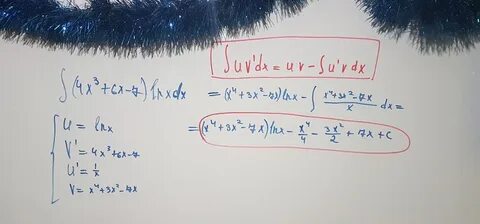 ∫uv'dx = uv - ∫u'v dx
∫(4x³+6x-7)lnxdx = (x⁴+3x²-7x)lnx - ∫ (x⁴+3x²-7x)/x dx =
u = lnx
v' = 4x³+6x-7
u' = 1/x
v = x⁴+3x²-7x
= (x⁴+3x²-7x)lnx - x⁴/4 - 3x²/2 + 7x + C